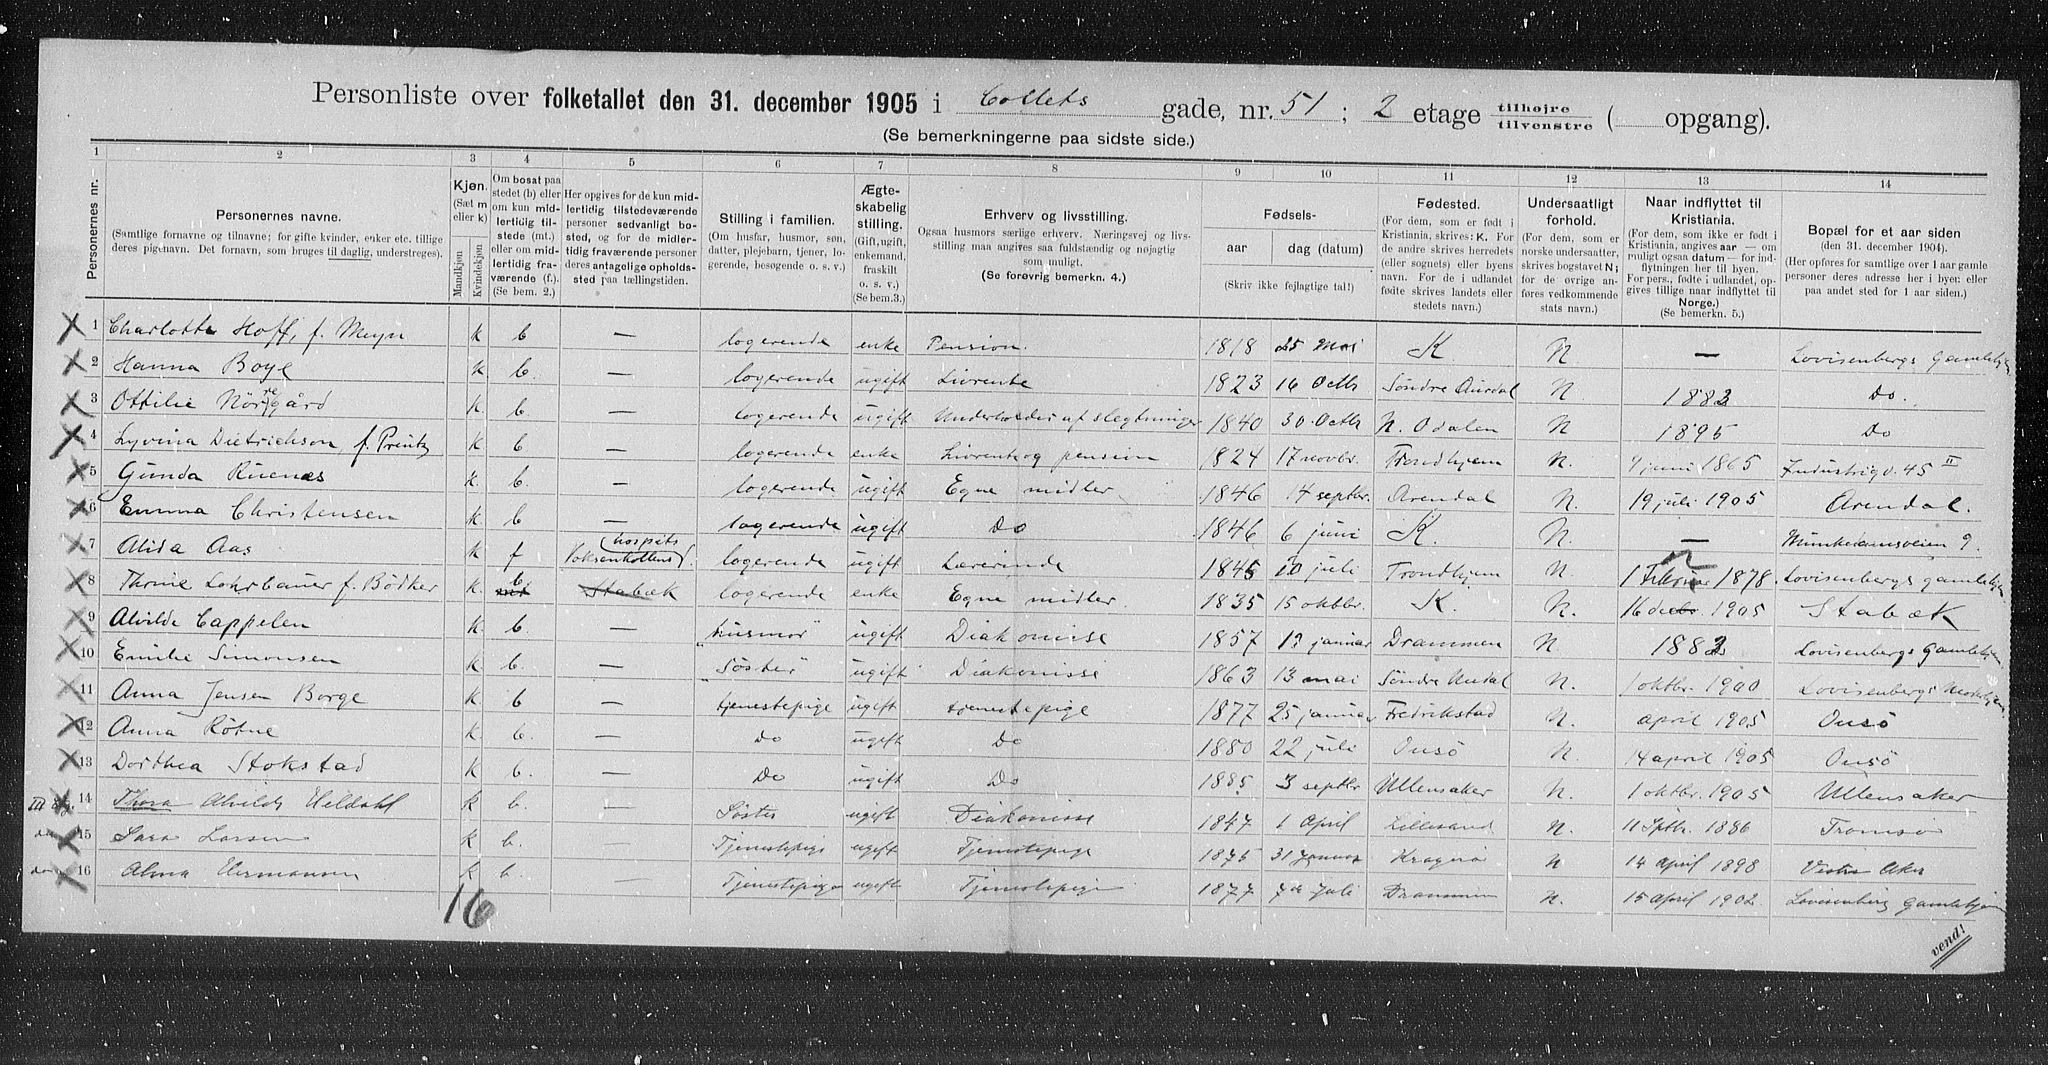 Personliste over folketallet den 31. december 1905 i Collets gade, nr. 51 ; 2 etage tilhøjre tilvenstre ( opgang).
(Se bemerkningerne paa sidste side.)
1 2 3 4 5 6 7 8 9 10 11 12 13 14
Personernes nr.
Personernes navne.
(Samtlige fornavne og tilnavne; for gifte kvinder, enker etc. tillige deres pigenavn. Det fornavn, som bruges til daglig, understreges).
Kjøn. (Sæt m eller k)
Mandkjøn
Kvindekjøn
Om bosat paa stedet (b) eller om kun midlertidig tilstede (mt.) eller om midlertidig fraværende (f.) (Se bem. 2.)
Her opgives for de kun midlertidig tilstedeværende personer sedvanlig bosted, og for de midlertidig fraværende personer deres antagelige opholdssted paa tællingstiden.
Stilling i familien.
(Om husfar, husmor, søn, datter, plejebarn, tjener, logerende, besøgende o. s. v.)
Ægteskabelig stilling.
(Gift, ugift, enkemand, fraskilt o. s. v.) (Se bem. 3.)
Erhverv og livsstilling.
Ogsaa husmors særlige erhverv. Næringsvej og livsstilling maa angives saa fuldstændig og nøjagtig som muligt.
(Se forøvrig bemerkn. 4.)
Fødsels-
aar dag (datum)
(Skriv ikke fejlagtige tal!)
Fødested.
(For dem, som er født i Kristiania, skrives: K. For de andre skrives herredets (eller sognets) eller byens navn. For de i udlandet fødte skrives landets eller stedets navn.)
Undersaatligt forhold.
(For dem, som er norske undersaatter, skrives bogstavet N; for de øvrige anføres vedkommende stats navn.)
Naar indflyttet til Kristiania.
(For dem, som ikke er født i Kristiania, angives aar — om muligt ogsaa datum — for indflytningen her til byen. For pers., fødte i udlandet, opgives tillige naar indflyttet til Norge.)
(Se bemerkn. 5.)
Bopæl for et aar siden
(den 31. december 1904.)
(Her opføres for samtlige over 1 aar gamle personer deres adresse her i byen eller paa andet sted for 1 aar siden.)
1 Charlotte Hoff, f. Meyn k b — logerende enke Pension. 1818 25 Mai K. N — Lovisenbergs Gamlehjem
2 Hanna Boye k b. — logerende ugift Livrente 1823 16 Octb Søndre Aurdal N 1883 Do.
3 Ottilie Nørregård k. b. — logerende ugift Underholdes af slegtninger 1840 30 Octb N. Odalen N 1895 Do
4 Lyvina Dietrichson f. Preutz k b — logerende enke Livrente og pension 1824 17 novbr. Trondhjem N. 9 juni 1865 Industrigd. 45 II
5 Gunda Ruenæs k. b. — logerende ugift Egne midler 1846 14 septbr. Arendal N. 19 juli 1905 Arendal.
6 Emma Christensen k. b — logerende ugift Do 1846 6 juni K. N. — Munkedamsveien 9.
7 Alida Aas k f Voksenkollens hospits logerende ugift Lærerinde 1845 10 juli Trondhjem N. 1 Februar 1878. Lovisenbergs gamlehjem
8 Thrine Lohrbauer f. Bødker k. b mt Stabæk logerende enke Egne midler. 1835 15 oktbr. K. N. 16 decbr. 1905 Stabæk
9 Alvilde Cappelen k. b. — "husmor" ugift Diakonisse 1857 13 januar Drammen N 1883 Lovisenbergs Gamlehjem
10 Emilie Simonsen k b. — "Søster" ugift Diakonisse 1863 13 mai Søndre Undal N. 1 oktbr. 1900 Lovisenbergs
11 Anna Jensen Borge k. b — tjenestepige ugift tjenestepige 1877 25 januar Fredrikstad N. april 1905 Onsø
12 Anna Rötne k b. — Do ugift Do 1880 22 juli Onsø N. 14 april 1905 Onsø
13 Dorthea Stokstad k b. — Do ugift Do 1885 3 septbr Ullensaker N. 1 oktbr. 1905 Ullensaker
III etg. 14 Thora Alvilde Heldahl k b. — Søster ugift Diakonisse 1847 1 April Lillesand N. 11 Sptbr. 1886 Tromsø
do 15 Sara Larsen k b. — Tjenestepige ugift Tjenestepige 1875 31 Januar Kragerø N 14 April 1898 Vestre Aker
do 16 Alma Hermansen k b. — Tjenestepige ugift Tjenestepige 1877 7de Juli Drammen N. 15 April 1902 Lovisenberg Gamlehjem
16
vend!